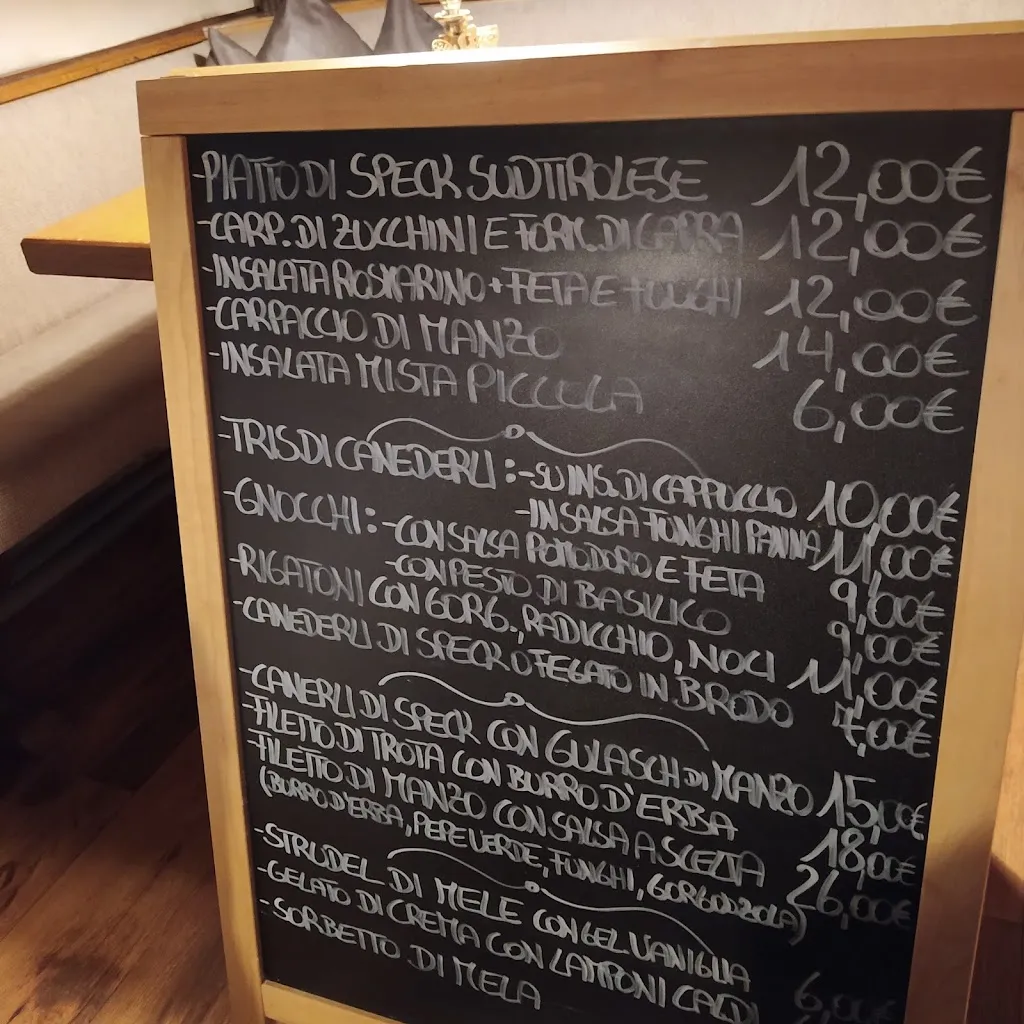 -PIATTO DI SPECK SUDTIROLESE 12,00€
-CARP. DI ZUCCHINI E FORM. DI CAPRA 12,00€
-INSALATA ROSMARINO + FETA E FUNGHI 12,00€
-CARPACCIO DI MANZO 14,00€
-INSALATA MISTA PICCOLA 6,00€
-TRIS DI CANEDERLI: -SU INS. DI CAPPUCCIO 10,00€
-IN SALSA FUNGHI PANNA 11,00€
-GNOCCHI: -CON SALSA POMODORO E FETA 9,00€
-CON PESTO DI BASILICO 9,00€
-RIGATONI CON GORG., RADICCHIO, NOCI 11,00€
-CANEDERLI DI SPECK O FEGATO IN BRODO 7,00€
-CANERLI DI SPECK CON GULASCH DI MANZO 15,00€
-FILETTO DI TROTA CON BURRO D'ERBA 18,00€
-FILETTO DI MANZO CON SALSA A SCELTA 26,00€
(BURRO D'ERBA, PEPE VERDE, FUNGHI, GORGONZOLA)
-STRUDEL DI MELE CON GEL VANIGLIA 6,00€
-GELATO DI CREMA CON LAMPONI CALDI
-SORBETTO DI MELA